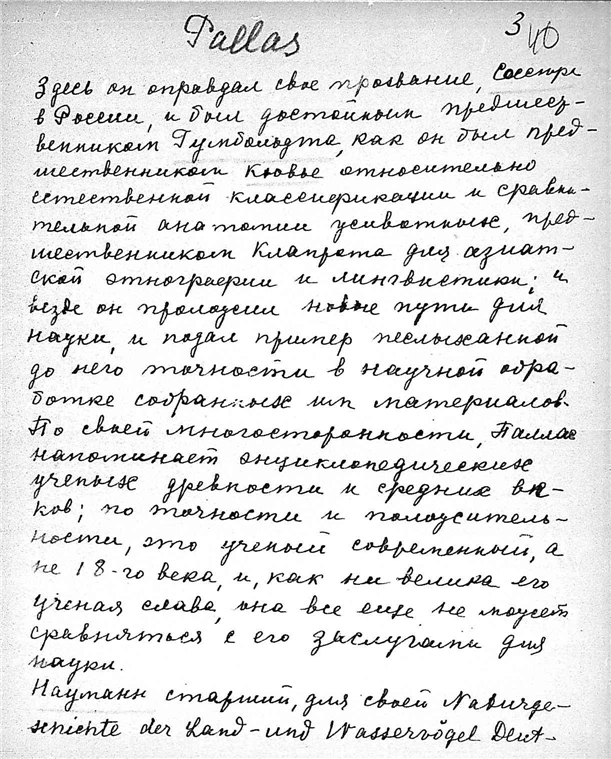 Pallas
3
40
Здесь он оправдал свое прозвание, Соссюре
в России, и был достойным предшест-
венником Гумбольдта, как он был пред-
шественником Кювье относительно
естественной классификации и сравни-
тельной анатомии животных, пред-
шественником Клапрота для азиат-
ской этнографии и лингвистики; и
везде он проложил новые пути для
науки, и подал пример неслыханной
до него точности в научной обра-
ботке собранных им материалов.
По своей многосторонности, Паллас
напоминает энциклопедических
ученых древности и средних ве-
ков; по точности и положитель-
ности, это ученый современный, а
не 18-го века, и, как ни велика его
ученая слава, она все еще не может
сравняться с его заслугами для
науки.
Науманн старший, для своей Naturge-
schichte der Land- und Wasservögel Deut-